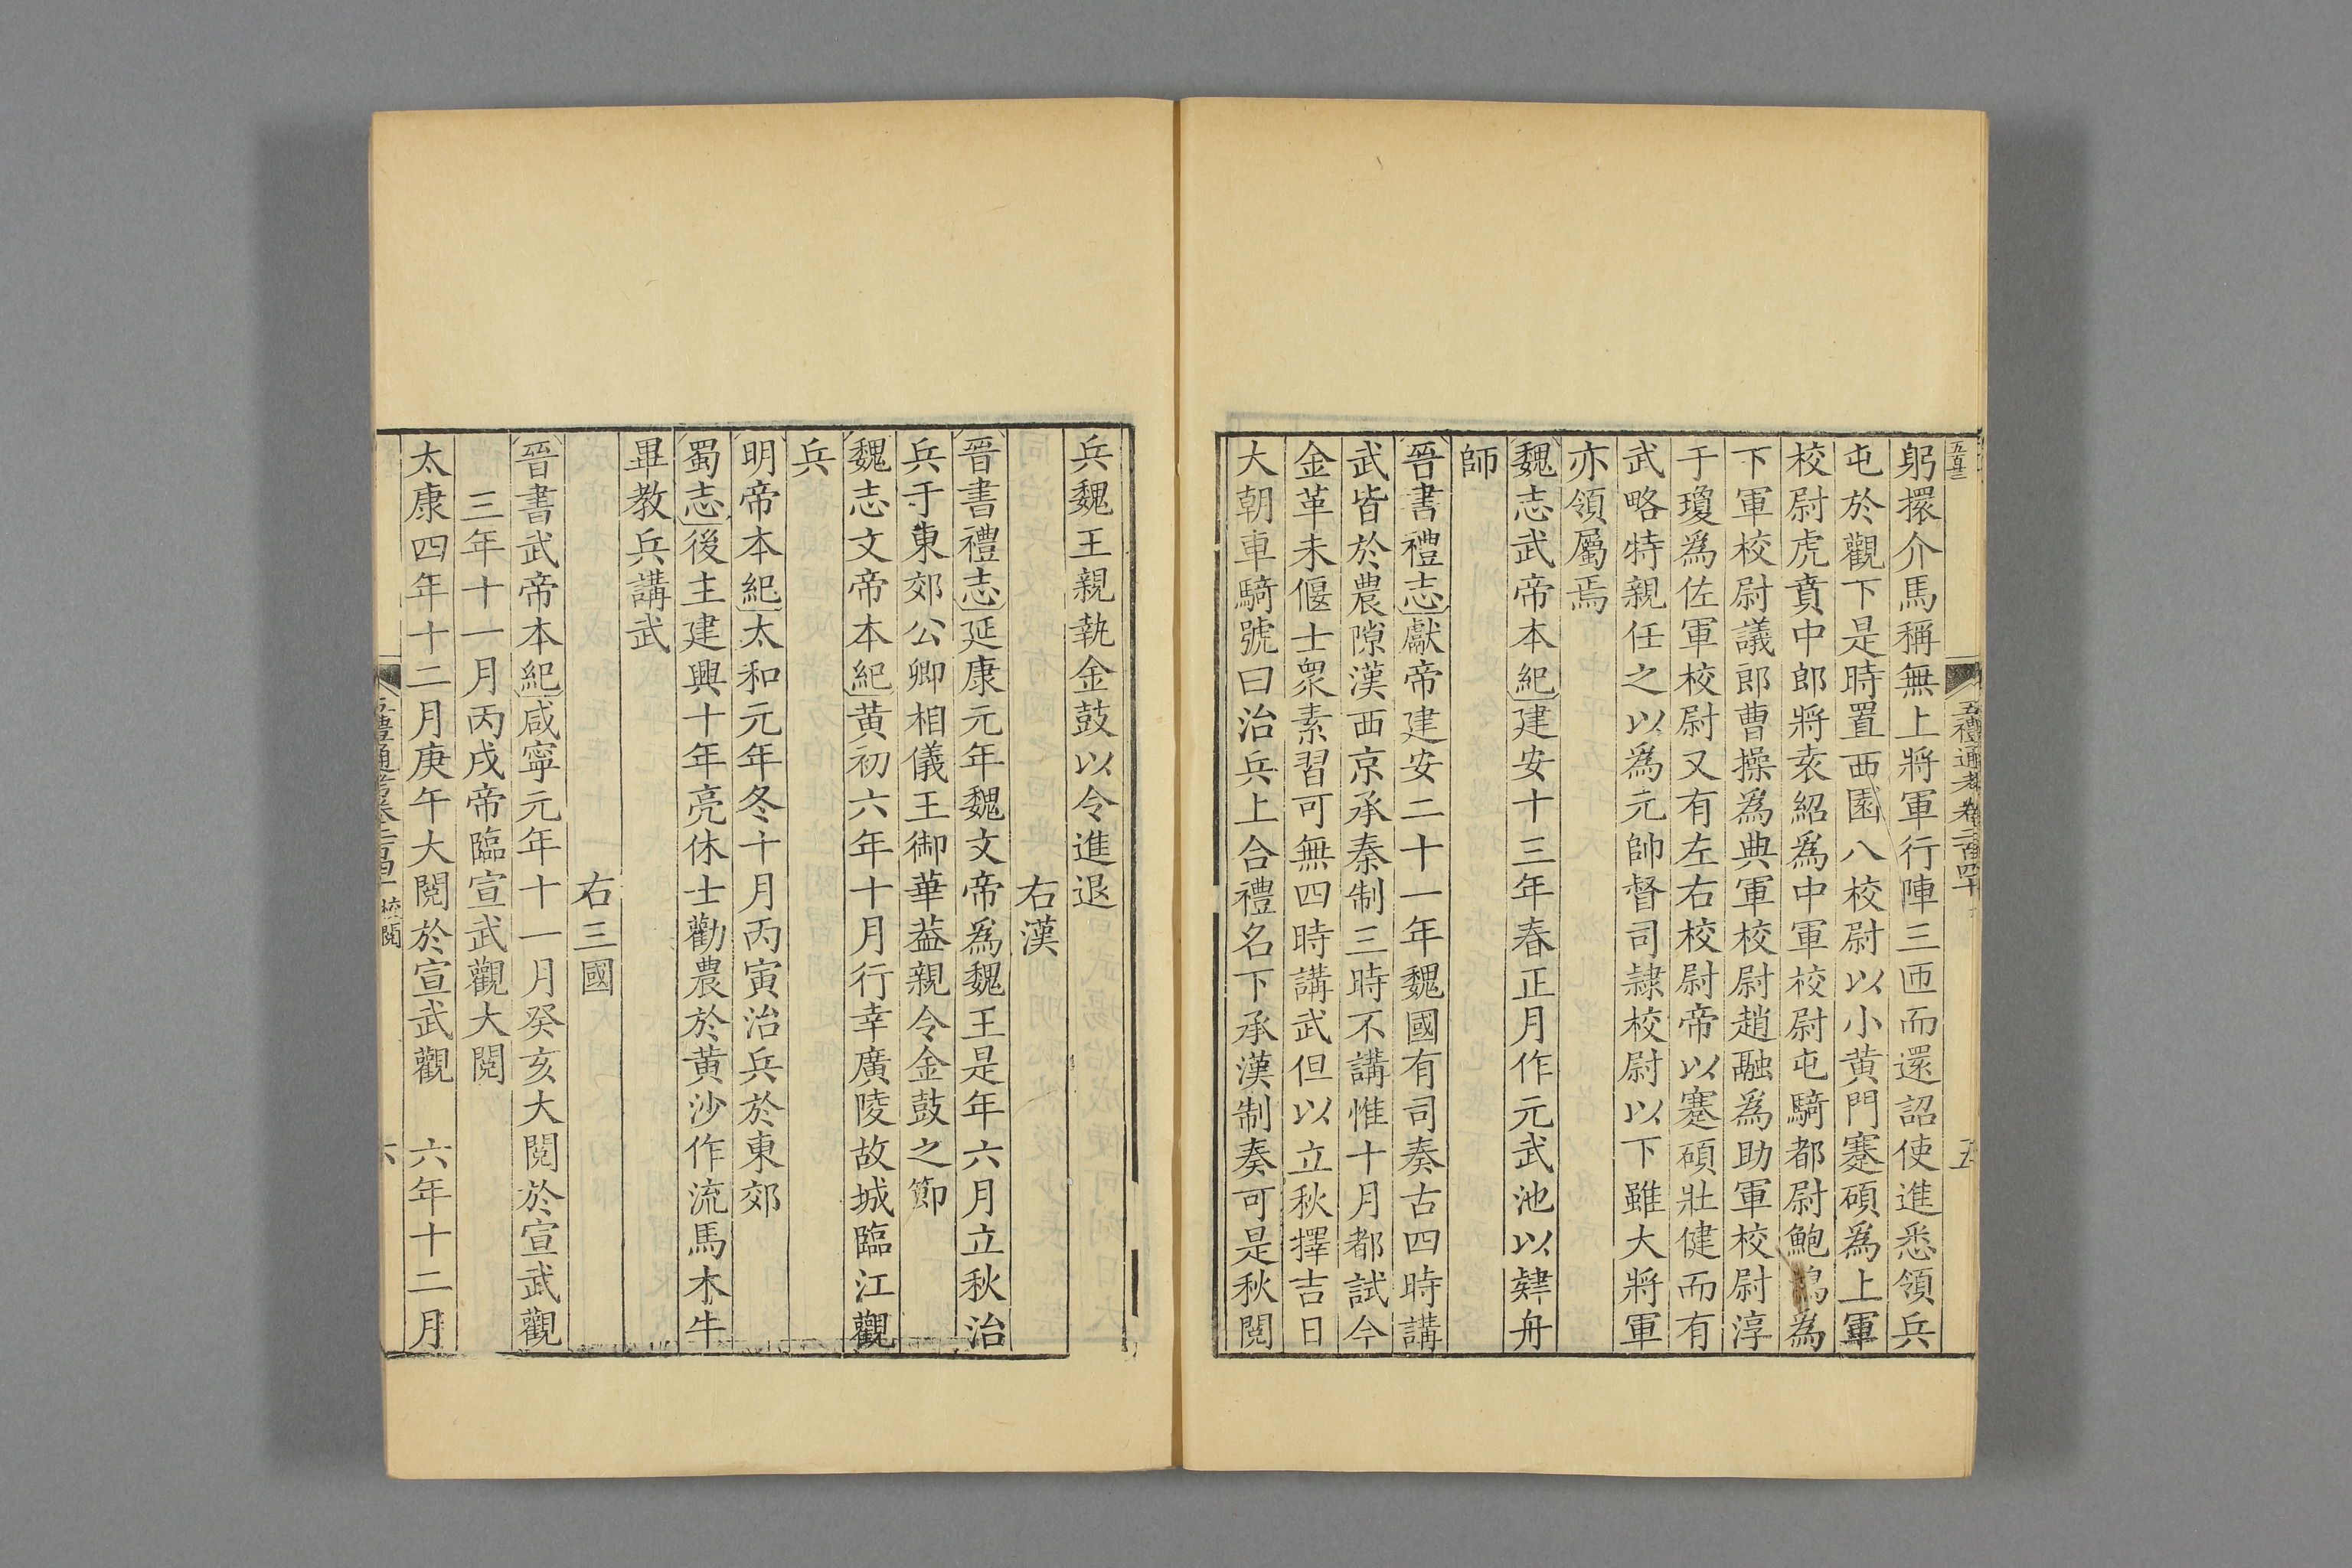 五百三
五禮通考卷二百四十
五
躬擐介馬稱無上將軍行陣三匝而還詔使進悉領兵
屯於觀下是時置西園八校尉以小黃門蹇碩為上軍
校尉虎賁中郎將袁紹為中軍校尉屯騎都尉鮑鴻為
下軍校尉議郎曹操為典軍校尉趙融為助軍校尉淳
于瓊為佐軍校尉又有左右校尉帝以蹇碩壯健而有
武略特親任之以為元帥督司隸校尉以下雖大將軍
亦領屬焉
魏志武帝本紀建安十三年春正月作元武池以肄舟
師
晉書禮志獻帝建安二十一年魏國有司奏古四時講
武皆於農隙漢西京承秦制三時不講惟十月都試今
金革未偃士眾素習可無四時講武但以立秋擇吉日
大朝車騎號曰治兵上合禮名下承漢制奏可是秋閱
兵魏王親執金鼓以令進退
右漢
晉書禮志延康元年魏文帝為魏王是年六月立秋治
兵于東郊公卿相儀王御華葢親令金鼓之節
魏志文帝本紀黃初六年十月行幸廣陵故城臨江觀
兵
明帝本紀太和元年冬十月丙寅治兵於東郊
蜀志後主建興十年亮休士勸農於黃沙作流馬木牛
畢教兵講武
右三國
晉書武帝本紀咸寧元年十一月癸亥大閱於宣武觀
三年十一月丙戌帝臨宣武觀大閱
太康四年十二月庚午大閱於宣武觀　六年十二月
五禮通考卷二百四十 校閱
六